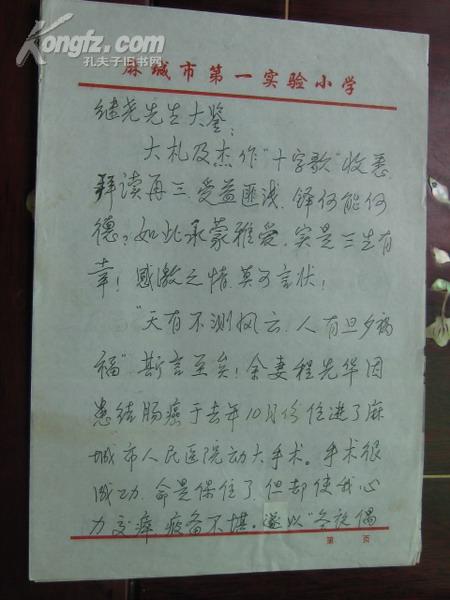 Kongfz.com
孔夫子旧书网
麻城市第一实验小学
继尧先生大鉴：
大札及杰作“十字歌”收悉
拜读再三、受益匪浅、铎何能何
德？如此承蒙雅爱、实是三生有
幸！感激之情、莫可言状！
“天有不测风云、人有旦夕祸
福”斯言至矣！余妻程先华因
患结肠癌于去年10月份住进了麻
城市人民医院动大手术。手术很
成功、命是保住了、但却使我心
力交瘁、疲备不堪、遂以“冬夜偶
第 页